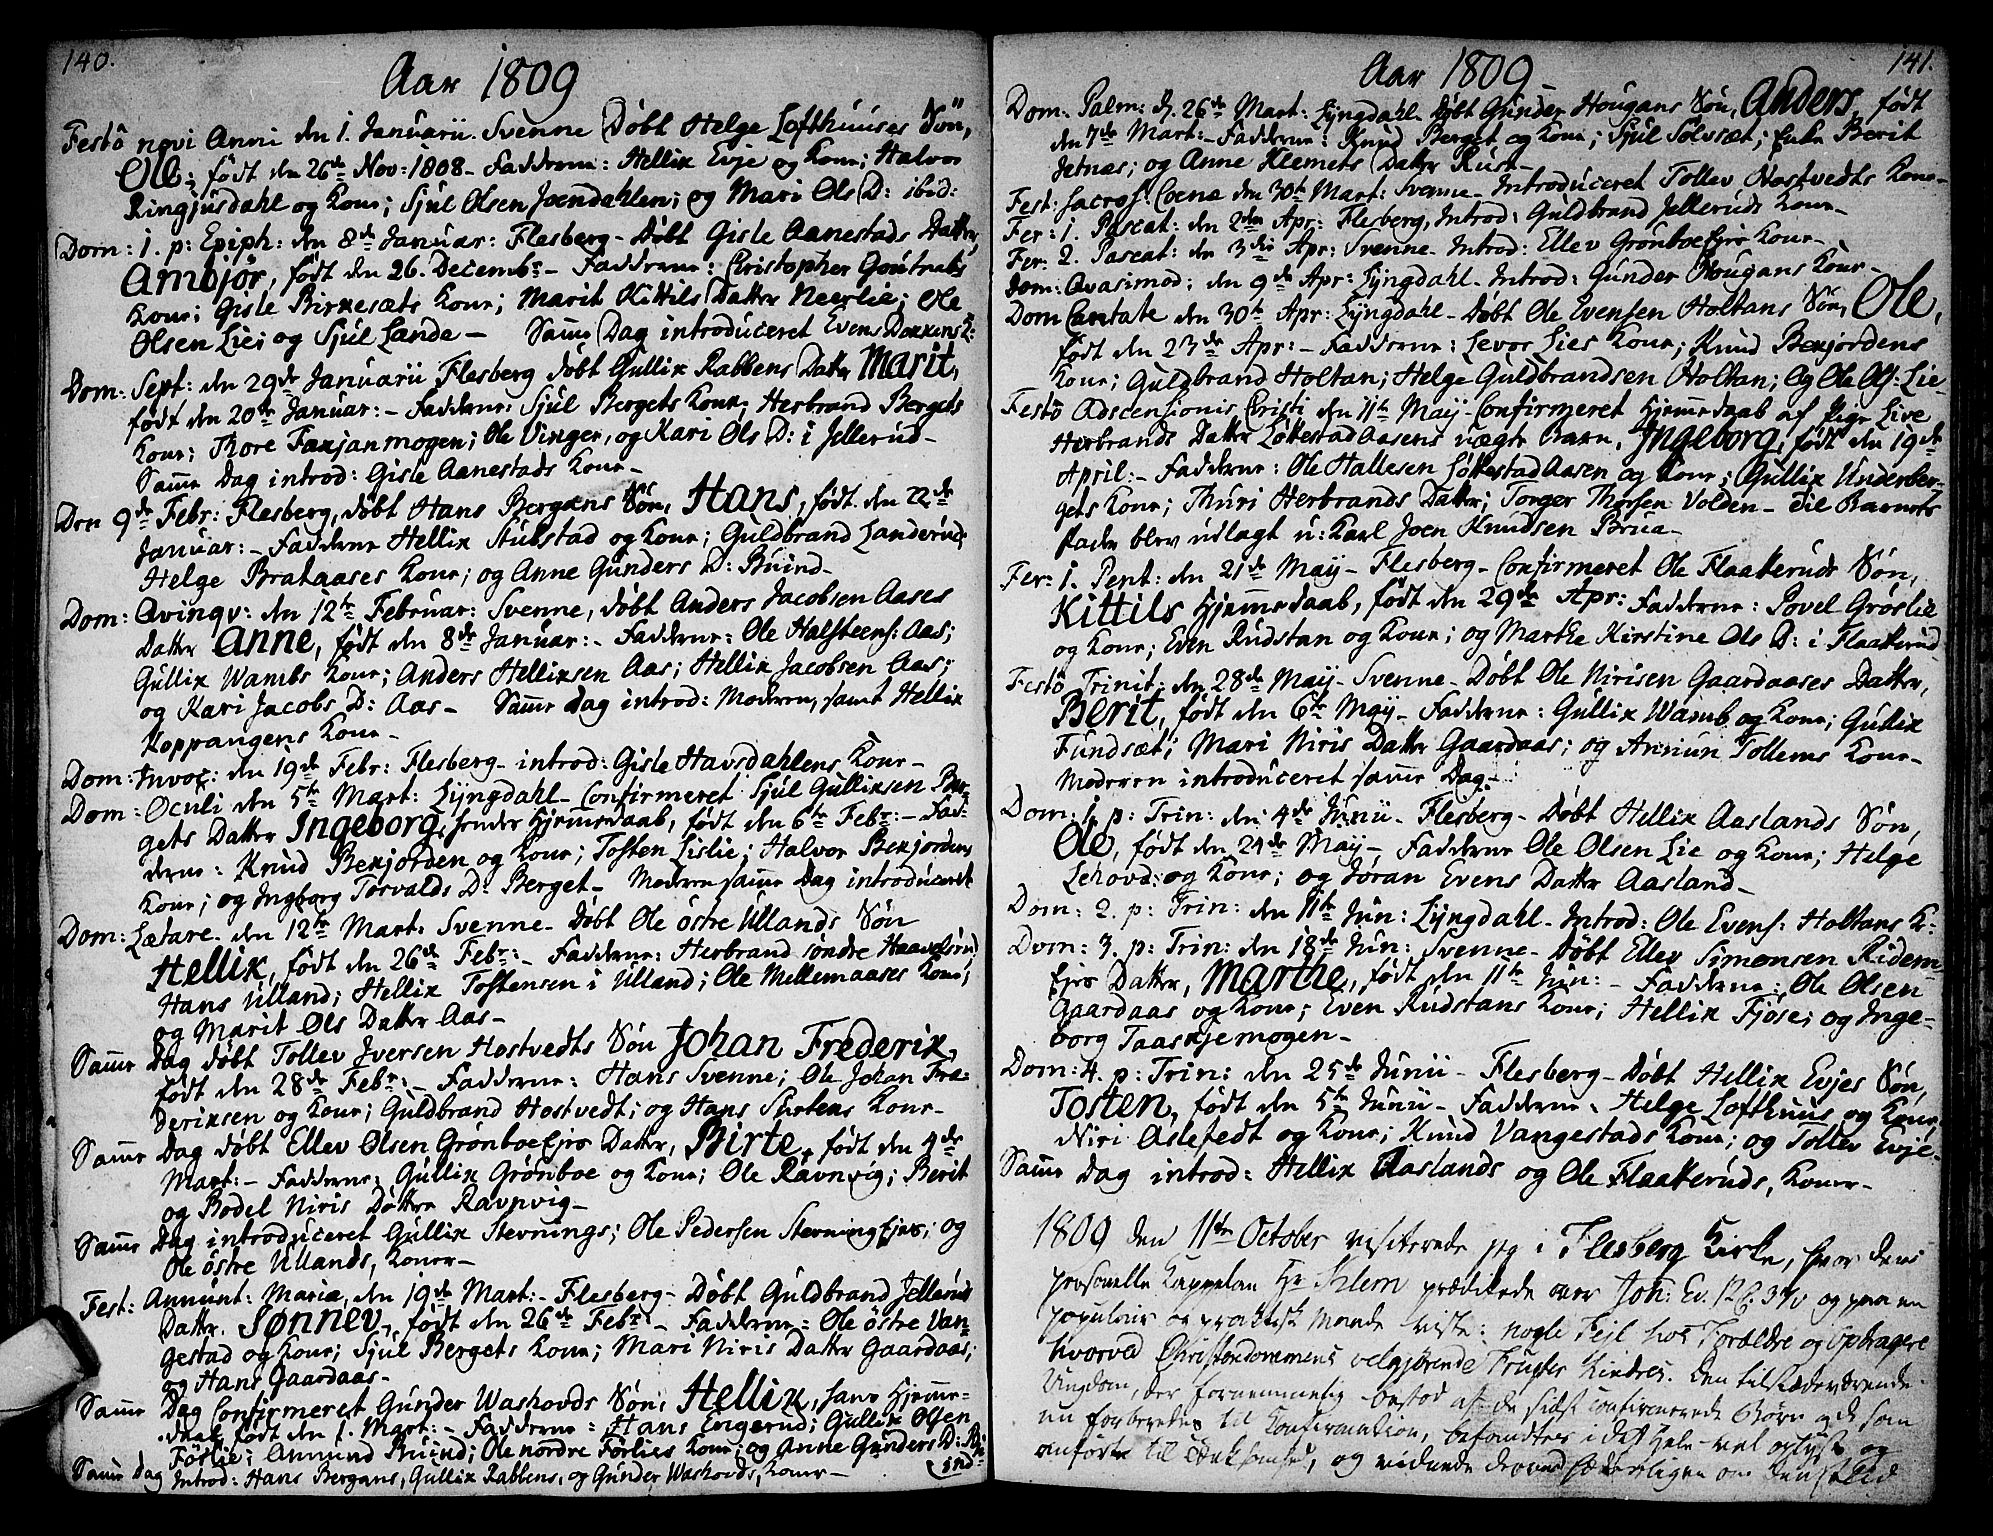 140.
Aar 1809
Festo novi Anni den 1. Januarii. Svenne Døbt Helge Lofthuuses Søn,
Ole, født den 26de Nov: 1808. Fadderne: Hellik Evje og Kone; Halvor
Ringjusdahl og Kone; Sjul Olsen Joendahlen; og Mari Ols D: ibid:
Dom: 1. p: Epiph: den 8de Januar: Flesberg - Døbt Gisle Aanestads Datter,
Ambjør, født den 26. Decembr - Fadderne: Christopher
Kone; Gisle Birkesæts Kone; Marit Kittils Datter Neerlie; Ole
Olsen Lie; og Sjul Lande - Samme Dag introduceret Evens Dokkens K:
Dom: Sept: den 29de Januarii Flesberg døbt Gullik Rabbens Datter Marit,
født den 20de Januar: - Fadderne: Sjul Bergets Kone; Herbrand Bergets
Kone; Thore Faxjanmogen; Ole Vinger, og Kari Ols D: i Jellerud -
Samme Dag introd: Gisle Aanestads Kone -
Den 9de Febr: Flesberg, døbt Hans Bergans Søn, Hans, født den 22de
Januar: - Fadderne Hellik Stubstad og Kone; Guldbrand Landeruds
Helge Brataases Kone; og Anne Gunders D: Buind -
Dom: Qvinqv: den 12te Februar: Svenne, døbt Anders Jacobsen Aases
Datter Anne, født den 8de Januar: - Fadderne: Ole Halsteens: Aas;
Gullik Wambs Kone; Anders Helliksen Aas; Hellik Jacobsen Aas;
og Kari Jacobs D: Aas - Samme dag introd: Moderen, samt Hellik
Koppangens Kone -
Dom: Invoc: den 19de Febr: Flesberg - introd: Gisle Havsdahlens Kone -
Dom: Oculi den 5te Mart: Lyngdahl - Confirmeret Sjul Gulliksen Ber-
gets Datter Ingeborg, hendes Hjemmedaab, født den 6te Febr: - Fad-
derne: Knud Bekjorden og Kone; Tosten Lislie; Halvor Bekjordens
Kone; og Ingborg Torvalds D: Berget - Moderen samme Dag introduceret
Dom: Lætare - den 12te Mart: Svenne - Døbt Ole østre Ullands Søn
Hellik, født den 26de Febr: - Fadderne: Herbrand søndre
Hans Ulland; Hellik Tostensen i Ulland; Ole Mellemaases Kone;
og Marit Ols Datter Aas -
Samme Dag døbt Tollev Iversen Hostvedts Søn Johan Frederik,
født den 28de Febr: - Fadderne: Hans Svenne; Ole Johan Fre-
deriksen og Kone; Guldbrand Hostvedt; og Hans Kone -
Samme Dag døbt Ellev Olsen Grønboe Ejes Datter, Birte, født den 4de
Mart: - Fadderne: Gullik Grønboe og Kone; Ole Ravnvig; Berit
og Bodel Niris Døttre Ravnvig -
Samme Dag introduceret Gullik Stevnings; Ole Pedersen Stevning Ejes; og
Ole østre Ullands, Koner -
Fest: Annunt: Maria, den 19de Mart: - Flesberg - Døbt Guldbrand Jelleruds
Datter. Sønnev, født den 26de Febr: - Fadderne: Ole østre Van-
gestad og Kone; Sjul Bergets Kone; Mari Niris Datter Gaardaas;
og Hans Gaardaas -
Samme Dag Confirmeret Gunder Waskovds Søn, Hellik, hans Hjemme-
daab født den 1. Mart: - Fadderne: Hans Engerud; Gullik Olsen
Førlie; Anund Buind; Ole nordre Førlies Kone; og Anne Gunders D: Bu-
ind -
Samme Dag Introd: Hans Bergans, Gullik Rabbens, og Gunder Waskovds, Koner -
141.
Aar 1809
Dom: Palm: d. 26de Mart: Lyngdahl døbt Gunder Hougans Søn, Anders, født
den 7de Mart: - Fadderne: Knud Berget og Kone; Sjul Solvsæt; Enke Berit
Jetnas; og Anne Klemets Datter Ruse -
Fest: Sacros: Coenæ den 30te Mart: Svenne - Introduceret Tollev Hostvedts Kone -
Fer: 1. Pascat: den 2den Apr: Flesberg, Introd: Guldbrand Jelleruds Kone -
Fer: 2. Pascat: den 3die Apr: Svenne - Introd: Ellev Grønboe Ejes Kone -
Dom: Qvasimod: den 9de Apr: Lyngdahl - Introd: Gunder Hougans Kone -
Dom Cantate den 30te Apr: Lyngdahl - Døbt Ole Evensen Holtans Søn, Ole,
født den 23de Apr: - Fadderne: Levor Lies Kone; Knud Bekjordens
Kone; Guldbrand Holtan; Helge Guldbrandsen Holtan; Og Ole Ols: Lie
Festo Adscensionis Christi den 11te Maÿ - Confirmeret Hjemmedaab af Pige Live
Herbrands Datter Løkestad Aasens uægte Barn, Ingeborg, født den 19de
April: - Fadderne: Ole Hallesen Løkestad Aasen og Kone; Gullik Underber-
gets Kone; Thuri Herbrands Datter; Torger Thorsen Volden - Til Barnets
Fader blev udlagt u: Karl Joen Knudsen Brua -
Fer: 1. Pent: den 21de Maÿ - Flesberg - Confirmeret Ole Flaateruds Søn,
Kittils Hjemmedaab, født den 29de Apr: Fadderne: Povel Grøslie
og Kone; Even Rudstan og Kone; og Marthe Kirstine Ols D: i Flaaterud
Festo Trinit: den 28de Maÿ - Svenne - Døbt Ole Nirisen Gaardaases Datter,
Berit, født den 6te Maÿ - Fadderne: Gullik Wamb og Kone; Gullik
Fundsæt; Mari Niris Datter Gaardaas; og Annun Tollems Kone -
Moderen introduceret samme Dag -
Dom: 1. p: Trin: den 4de Junii - Flesberg - Døbt Hellik Aaslands Søn,
Ole, født den 24de Maÿ - Fadderne Ole Olsen Lie og Kone; Helge
Lehovd: og Kone; og Joran Evens Datter Aasland -
Dom: 2. p: Trin: den 11te Jun: Lyngdahl - Introd: Ole Evens: Holtans K:
Dom: 3. p: Trin: den 18de Jun: Svenne - Døbt Ellev Simonsen Ridem-
Ejes Datter, Marthe, født den 11te Jun: - Fadderne: Ole Olsen
Gaardaas og Kone; Even Rudstans Kone; Hellik Fjøse; og Inge-
borg Taaskjemogen -
Dom: 4. p: Trin: den 25de Junii - Flesberg - Døbt Hellik Evjes Søn,
Tosten, født den 5te Junii - Fadderne: Helge Lofthuus og Kone,
Niri Aslefedt og Kone; Knud Vangestads Kone; og Tollev Evje -
Samme Dag introd: Hellik Aaslands og Ole Flaateruds, Koner -
1809 den 11te October visiterede jeg i Flesberg Kirke, hvor den
personelle Kappelan Hr prædikede over Joh: Ev. og paa en
populair og praktisk Maade viste: nogle Feil hos Forældre og Opdragere
hvorved Christendommens velgjørende Frugter hindres. Den tilstædeværende
Ungdom, der fornemmelig bestod af de sidst confirmerede Børn og de som
nu forberedes til Confirmation, befandtes i det Hele vel oplyst og
anført til Tænksomhed, og vidnede derved om Deres Flid